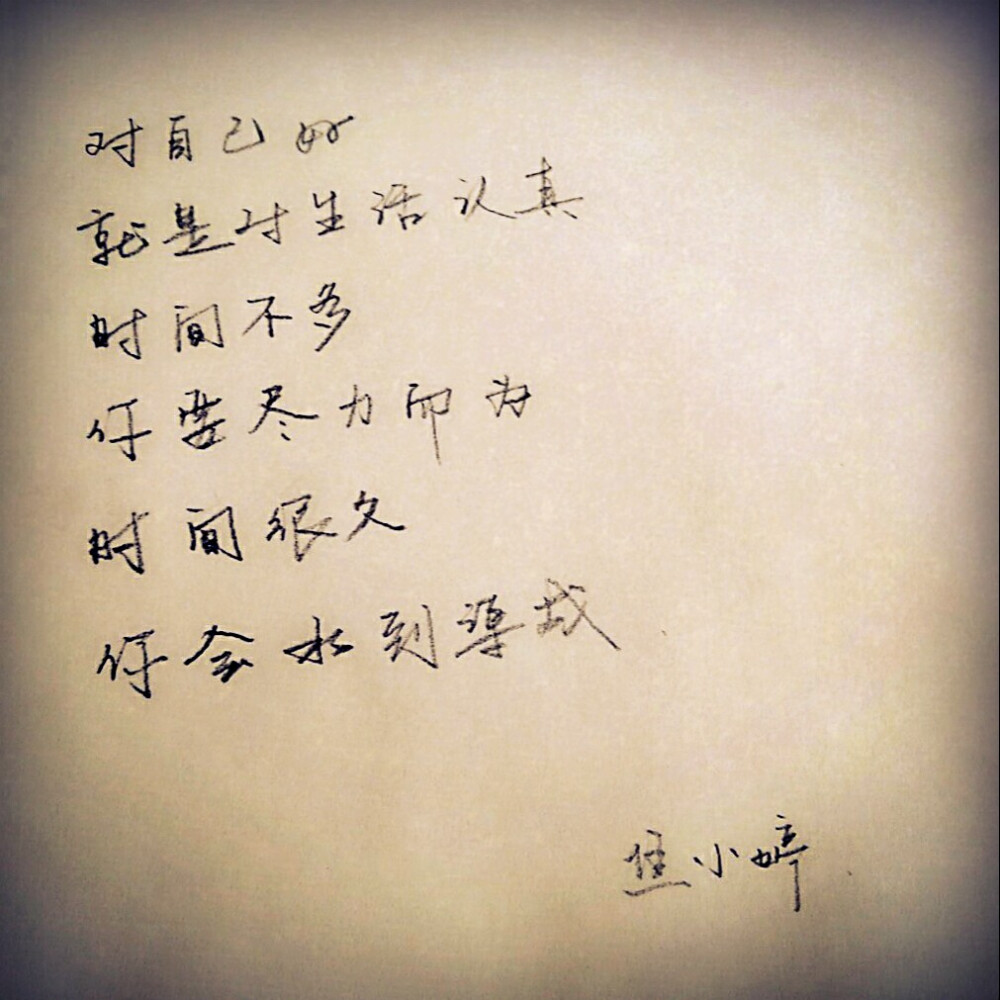 对自己好
就是对生活认真
时间不多
你要尽力而为
时间很久
你会水到渠成
焦小婷